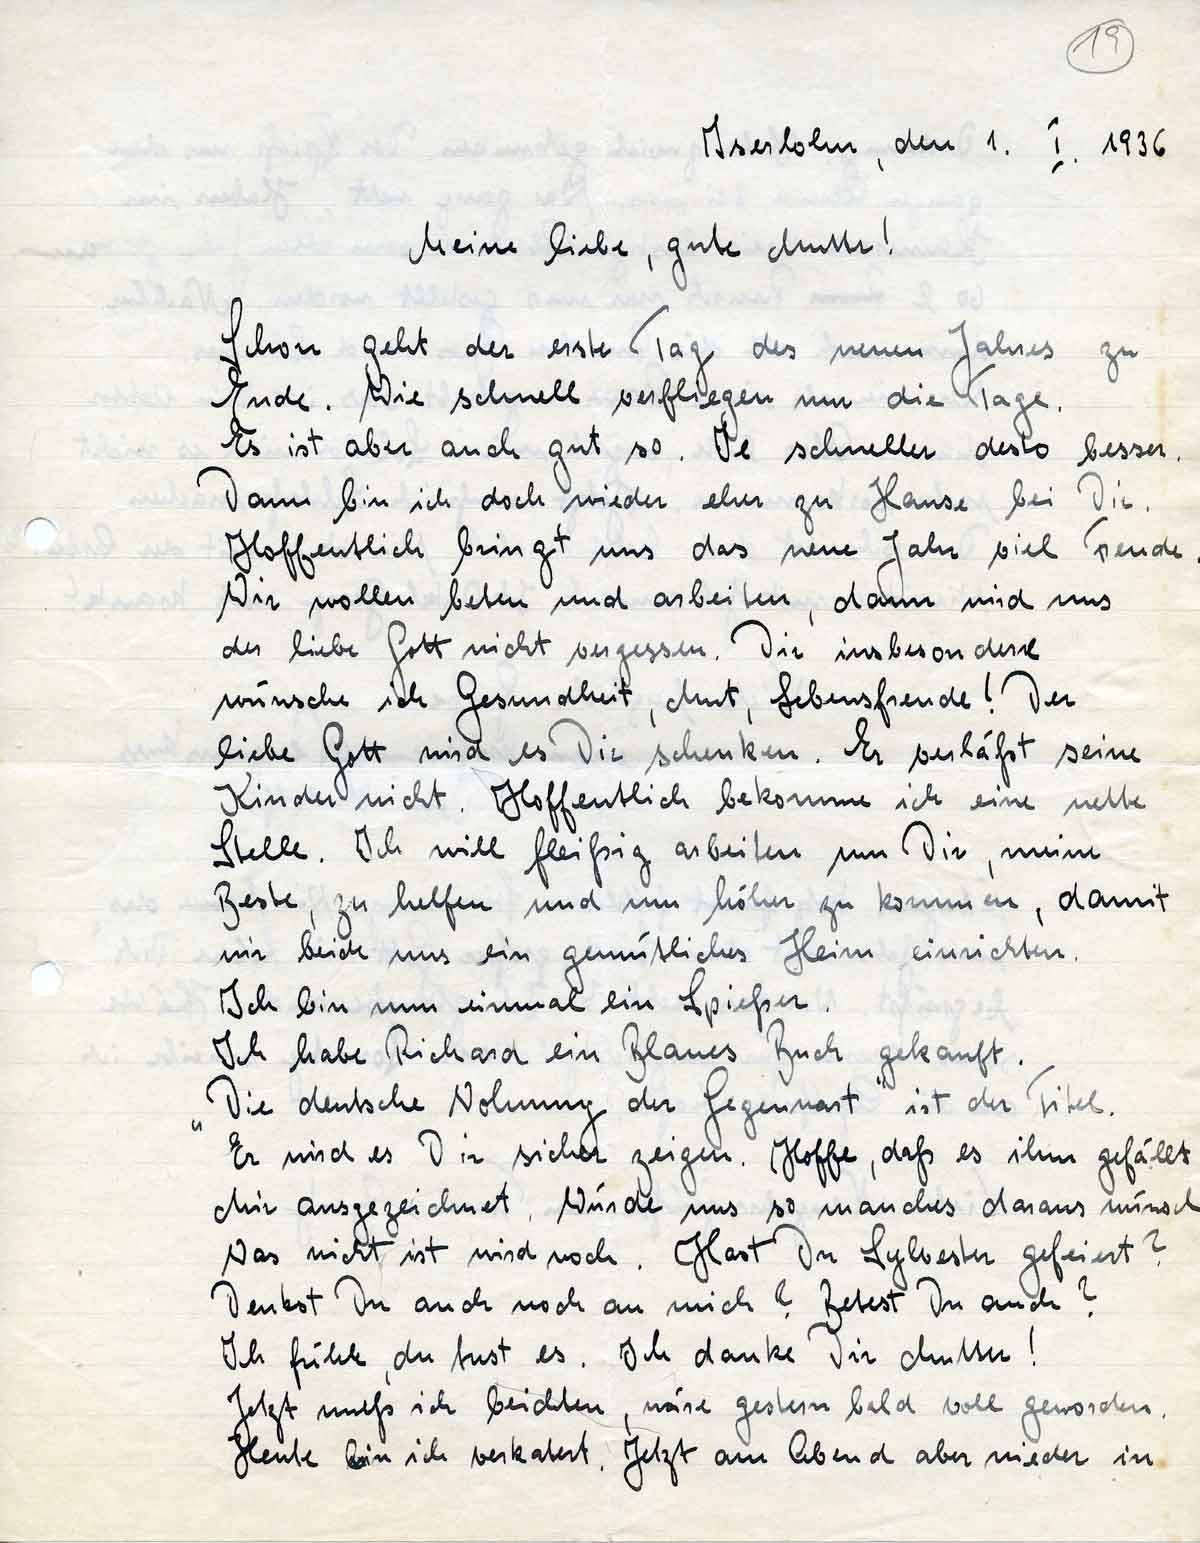 19
Iserlohn, den 1. I. 1936
Meine liebe, gute Mutter!
Schon geht der erste Tag des neuen Jahres zu
Ende. Wie schnell verfliegen nur die Tage.
Es ist aber auch gut so. Je schneller desto besser.
Dann bin ich doch wieder eher zu Hause bei Dir.
Hoffentlich bringt uns das neue Jahr viel Freude.
Wir wollen beten und arbeiten, dann wird uns
der liebe Gott nicht vergessen. Dir insbesondere
wünsche ich Gesundheit, Mut, Lebensfreude! Der
liebe Gott wird es Dir schenken. Er verläßt seine
Kinder nicht. Hoffentlich bekomme ich eine nette
Stelle. Ich will fleißig arbeiten um Dir, meine
Beste, zu helfen und um höher zu kommen, damit
wir beide uns ein gemütliches Heim einrichten.
Ich bin nun einmal ein Spießer.
Ich habe Richard ein Blaues Buch gekauft.
„Die deutsche Wohnung der Gegenwart" ist der Titel.
Er wird es Dir sicher zeigen. Hoffe, daß es ihm gefällt
Mir ausgezeichnet. Würde uns so manches daraus wünsch
Was nicht ist wird noch. Hast Du Sylvester gefeiert?
Denkst Du auch noch an mich? Betest Du auch?
Ich fühle, du tust es. Ich danke Dir Mutter!
Jetzt muß ich beichten, wäre gestern bald voll geworden.
Heute bin ich verkatert. Jetzt am Abend aber wieder in